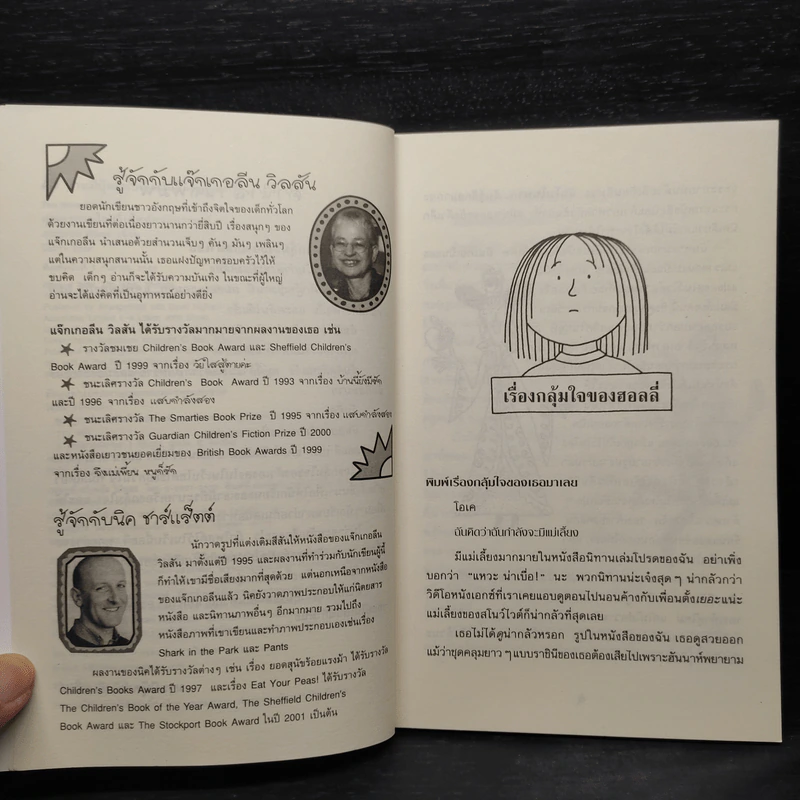 รู้จักกับแจ๊กเกอลีน วิลสัน
ยอดนักเขียนชาวอังกฤษที่เข้าถึงจิตใจของเด็กทั่วโลก
ด้วยงานเขียนที่ต่อเนื่องยาวนานกว่ายี่สิบปี เรื่องสนุกๆ ของ
แจ๊กเกอลีน นำเสนอด้วยสำนวนเจ็บๆ คันๆ มันๆ เพลินๆ
แต่ในความสนุกสนานนั้น เธอแฝงปัญหาครอบครัวไว้ให้
ขบคิด เด็กๆ อ่านก็จะได้รับความบันเทิง ในขณะที่ผู้ใหญ่
อ่านจะได้แง่คิดที่เป็นอุทาหรณ์อย่างดียิ่ง
แจ๊กเกอลีน วิลสัน ได้รับรางวัลมากมายจากผลงานของเธอ เช่น
รางวัลชมเชย Children's Book Award และ Sheffield Children's
Book Award ปี 1999 จากเรื่อง วัยใสสู้ตายค่ะ
ชนะเลิศรางวัล Children's Book Award ปี 1993 จากเรื่อง บ้านนี้ยังมีรัก
และปี 1996 จากเรื่อง แสบกำลังสอง
ชนะเลิศรางวัล The Smarties Book Prize ปี 1995 จากเรื่อง แสบกำลังสอง
ชนะเลิศรางวัล Guardian Children's Fiction Prize ปี 2000
และหนังสือเยาวชนยอดเยี่ยมของ British Book Awards ปี 1999
จากเรื่อง ถึงแม่เพี้ยน หนูก็รัก
รู้จักกับนิค ชาร์แร็ตต์
นักวาดรูปที่แต่งเติมสีสันให้หนังสือของแจ๊กเกอลีน
วิลสัน มาตั้งแต่ปี 1995 และผลงานที่ทำร่วมกับนักเขียนผู้นี้
ก็ทำให้เขามีชื่อเสียงมากที่สุดด้วย แต่นอกเหนือจากหนังสือ
ของแจ๊กเกอลีนแล้ว นิคยังวาดภาพประกอบให้แก่นิตยสาร
หนังสือ และนิทานภาพอื่นๆ อีกมากมาย รวมไปถึง
หนังสือภาพที่เขาเขียนและทำภาพประกอบเองเช่นเรื่อง
Shark in the Park และ Pants
ผลงานของนิคได้รับรางวัลต่างๆ เช่น เรื่อง ยอดสุนัขร้อยแรงม้า ได้รับรางวัล
Children's Books Award ปี 1997 และเรื่อง Eat Your Peas! ได้รับรางวัล
The Children's Book of the Year Award, The Sheffield Children's
Book Award และ The Stockport Book Award ในปี 2001 เป็นต้น
เรื่องกลุ้มใจของฮอลลี่
พิมพ์เรื่องกลุ้มใจของเธอมาเลย
โอเค
ฉันคิดว่าฉันกำลังจะมีแม่เลี้ยง
มีแม่เลี้ยงมากมายในหนังสือนิทานเล่มโปรดของฉัน อย่าเพิ่ง
บอกว่า "แหวะ น่าเบื่อ!" นะ พวกนิทานน่ะเจ๋งสุดๆ น่ากลัวกว่า
วิดีโอหนังเอกซ์ที่เราเคยแอบดูตอนไปนอนค้างกับเพื่อนตั้งเยอะแน่ะ
แม่เลี้ยงของสโนว์ไวต์ก็น่ากลัวที่สุดเลย
เธอไม่ได้ดูน่ากลัวหรอก รูปในหนังสือของฉัน เธอดูสวยออก
แม้ว่าชุดคลุมยาวๆ แบบราชินีของเธอต้องเสียไปเพราะฮันนาห์พยายาม